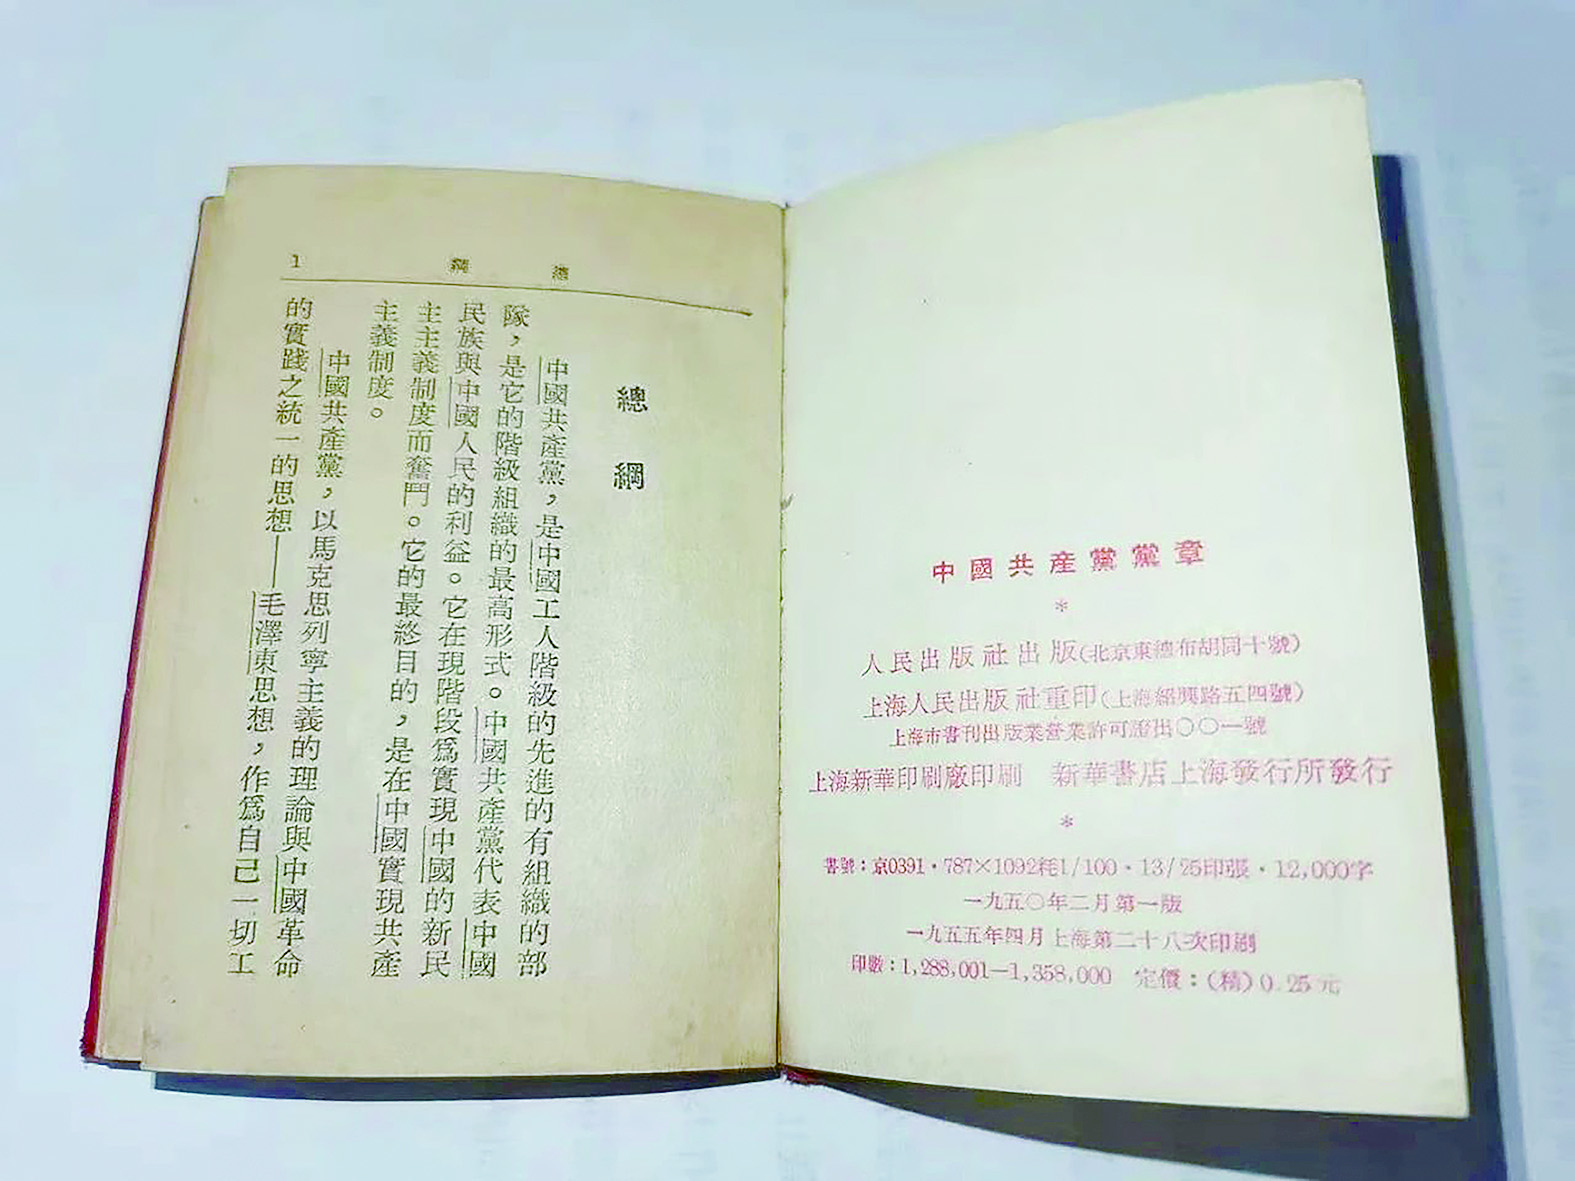 中國共產黨黨章
*
人民出版社出版(北京東總布胡同十號)
上海人民出版社重印(上海紹興路五四號)
上海市書刊出版業營業許可證出〇〇一號
上海新華印刷廠印刷 新華書店上海發行所發行
*
書號：京0391·787×1092耗1/100·13/25印張·12,000字
一九五〇年二月第一版
一九五五年四月上海第二十八次印刷
印數：1,288,001—1,358,000 定價：(精)0.25元
總 綱 1
總 綱
中國共產黨，是中國工人階級的先進的有組織的部
隊，是它的階級組織的最高形式。中國共產黨代表中國
民族與中國人民的利益。它在現階段爲實現中國的新民
主主義制度而奮鬥。它的最終目的，是在中國實現共產
主義制度。
中國共產黨，以馬克思列寧主義的理論與中國革命
的實踐之統一的思想——毛澤東思想，作爲自己一切工